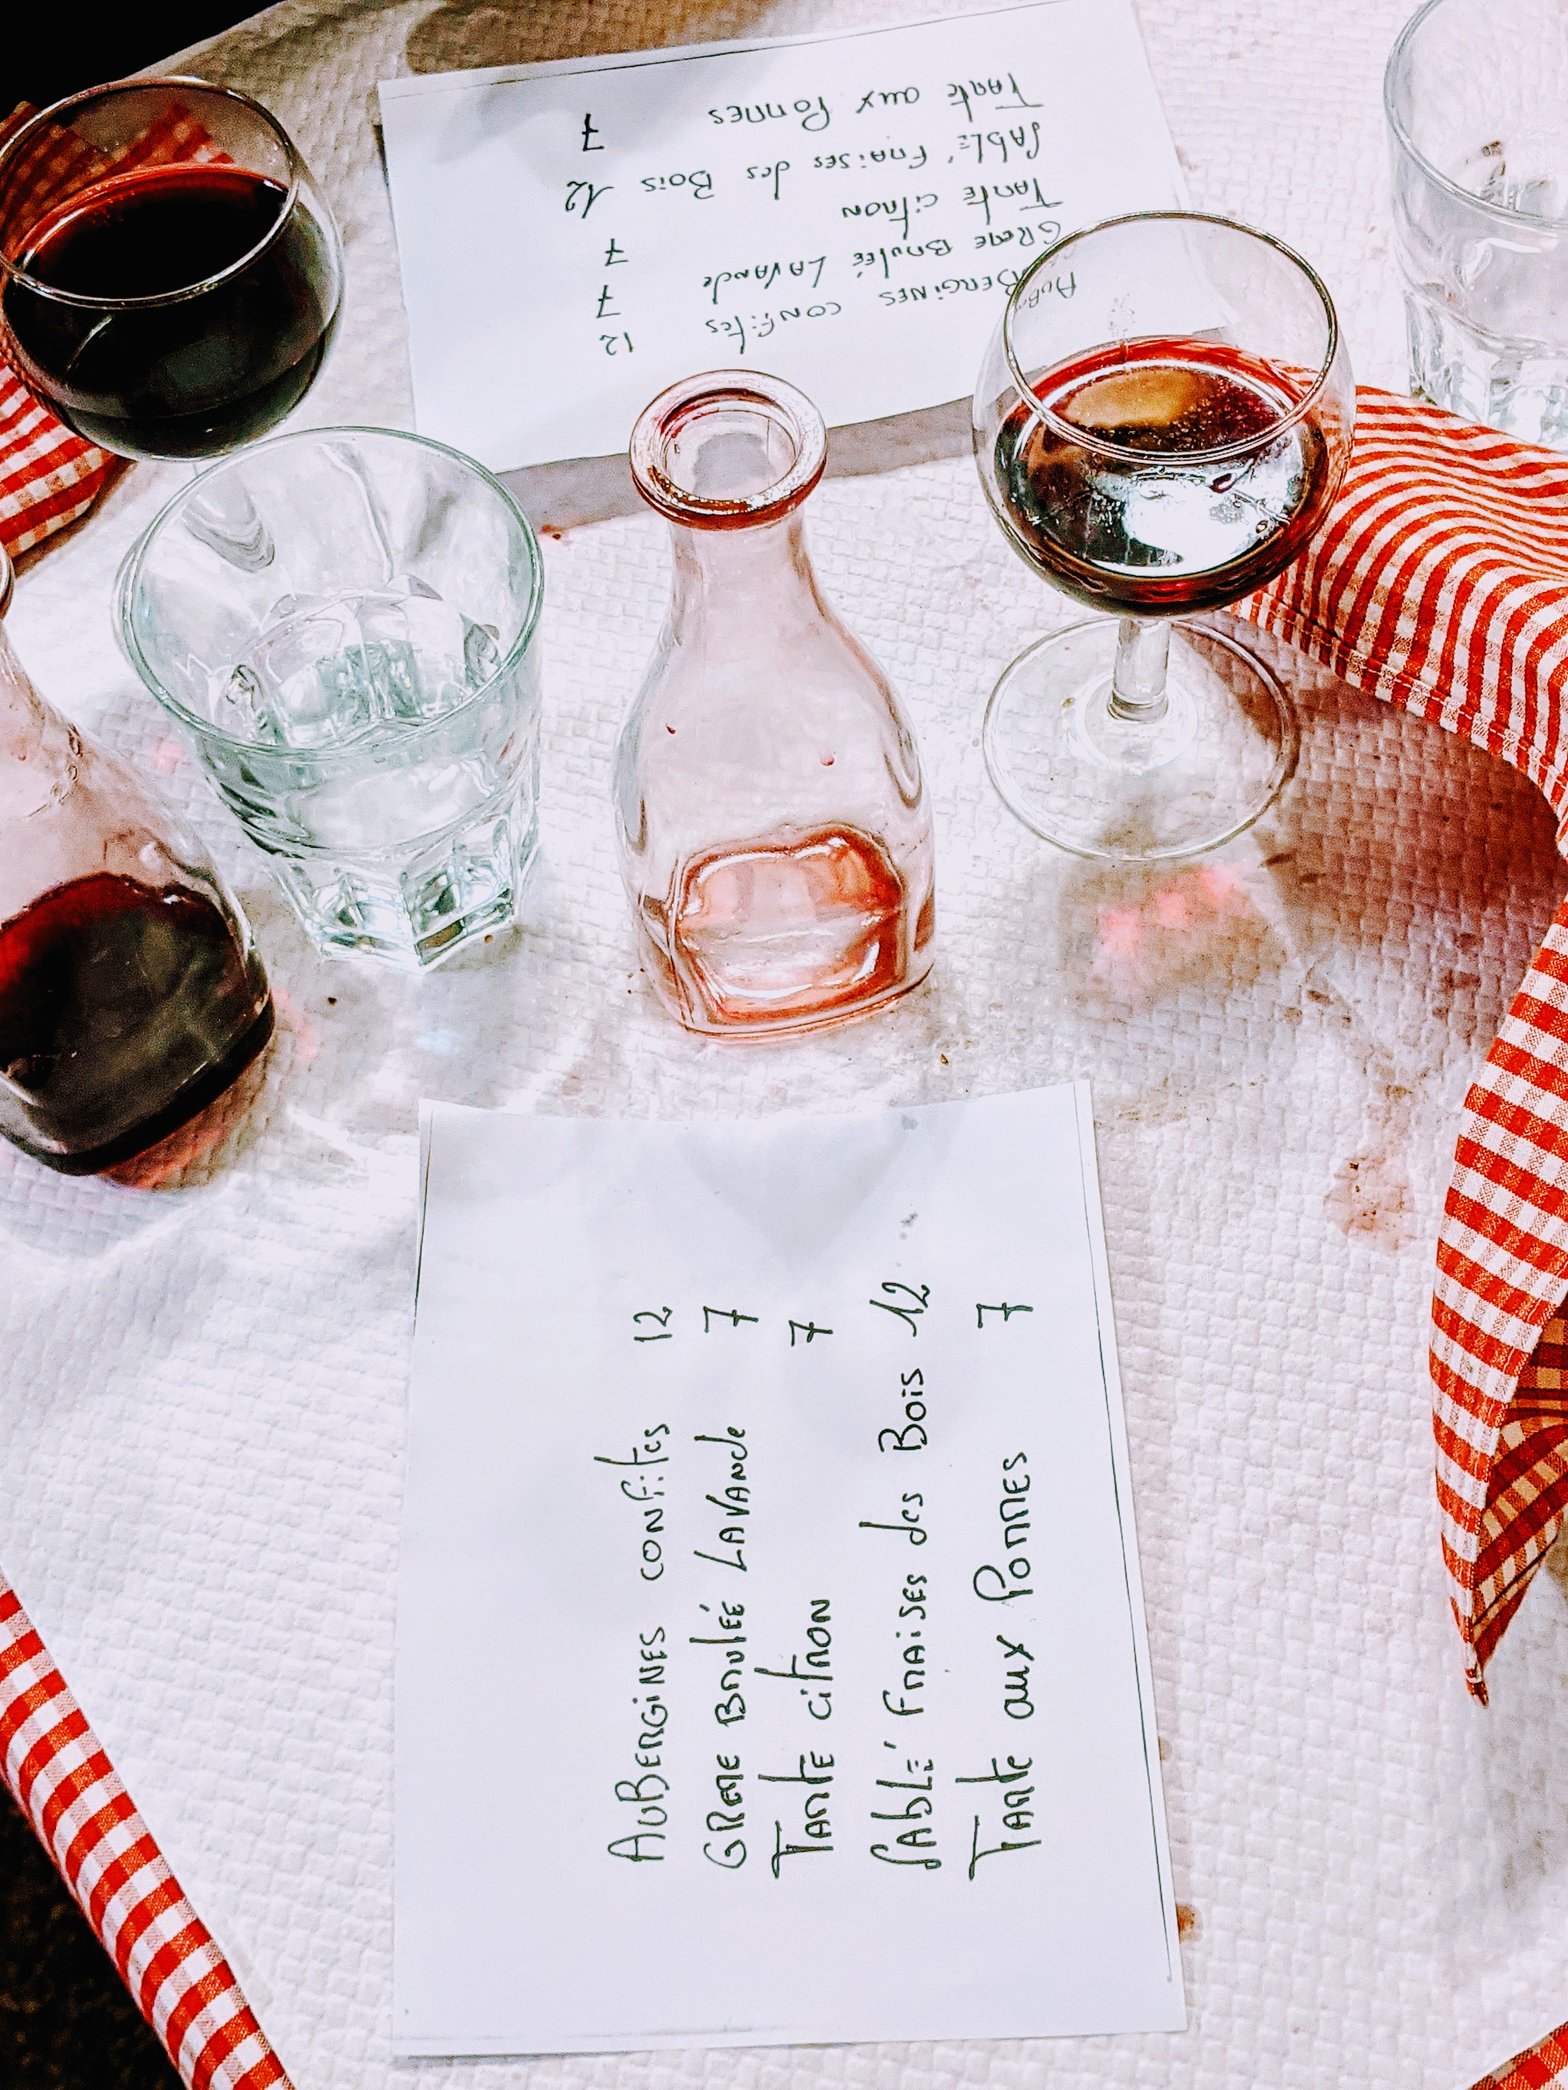 Tarte aux Pommes 7
Sablé Fraises des Bois 12
Tarte citron 7
CREME BRULÉE LAVANDE 7
AUBERGINES CONFITES 12
AUBERGINES CONFITES 12
CREME BRULÉE LAVANDE 7
TARTE CITRON 7
SABLÉ FRAISES des Bois 12
TARTE aux POMMES 7